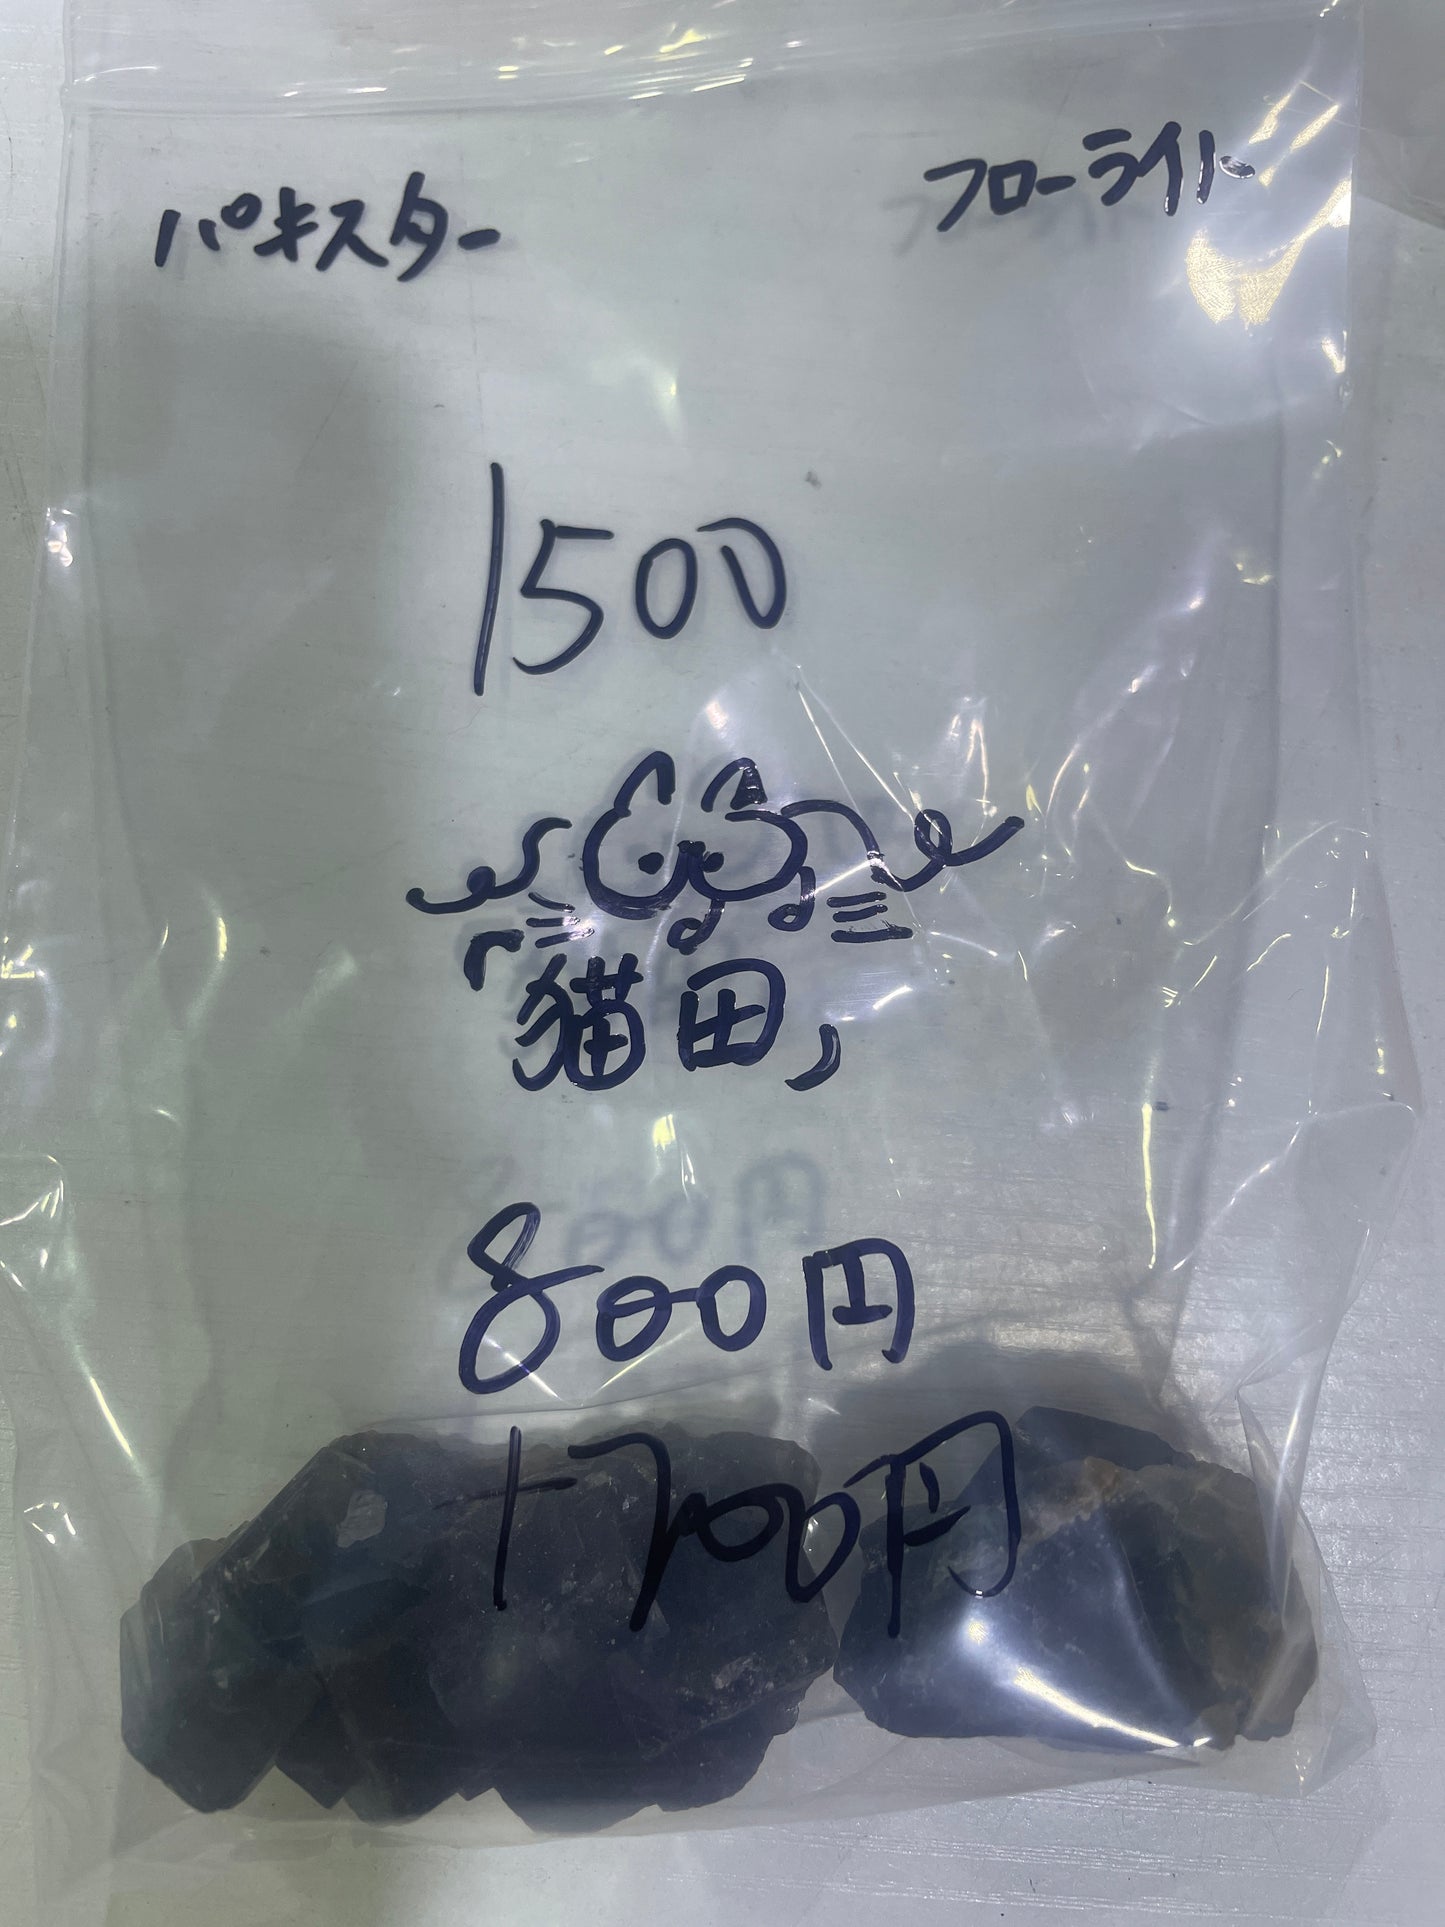 パキスター
フローライト
1500
「猫田」
800円
+700円